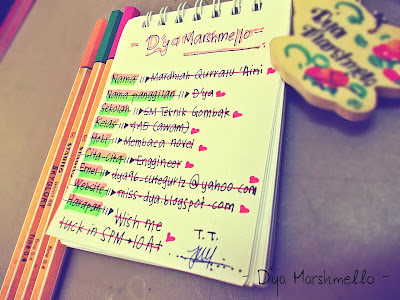 - D'ya Marshmello -
Nama || Mardhiah Qurratu 'Aini
Nama panggilan || D'ya
Sekolah || SM Teknik Gombak
Kelas || 4A5 (awam)
Hobi || Membaca novel
Cita-Cita || Enggineer
Emel || dya96_cutegurlz@yahoo.com
Website || miss-dya.blogspot.com
Harapan || Wish me
luck in SPM → 10A+
T.T.
D'ya
Marshmello
STABILO
D'ya Marshmello -